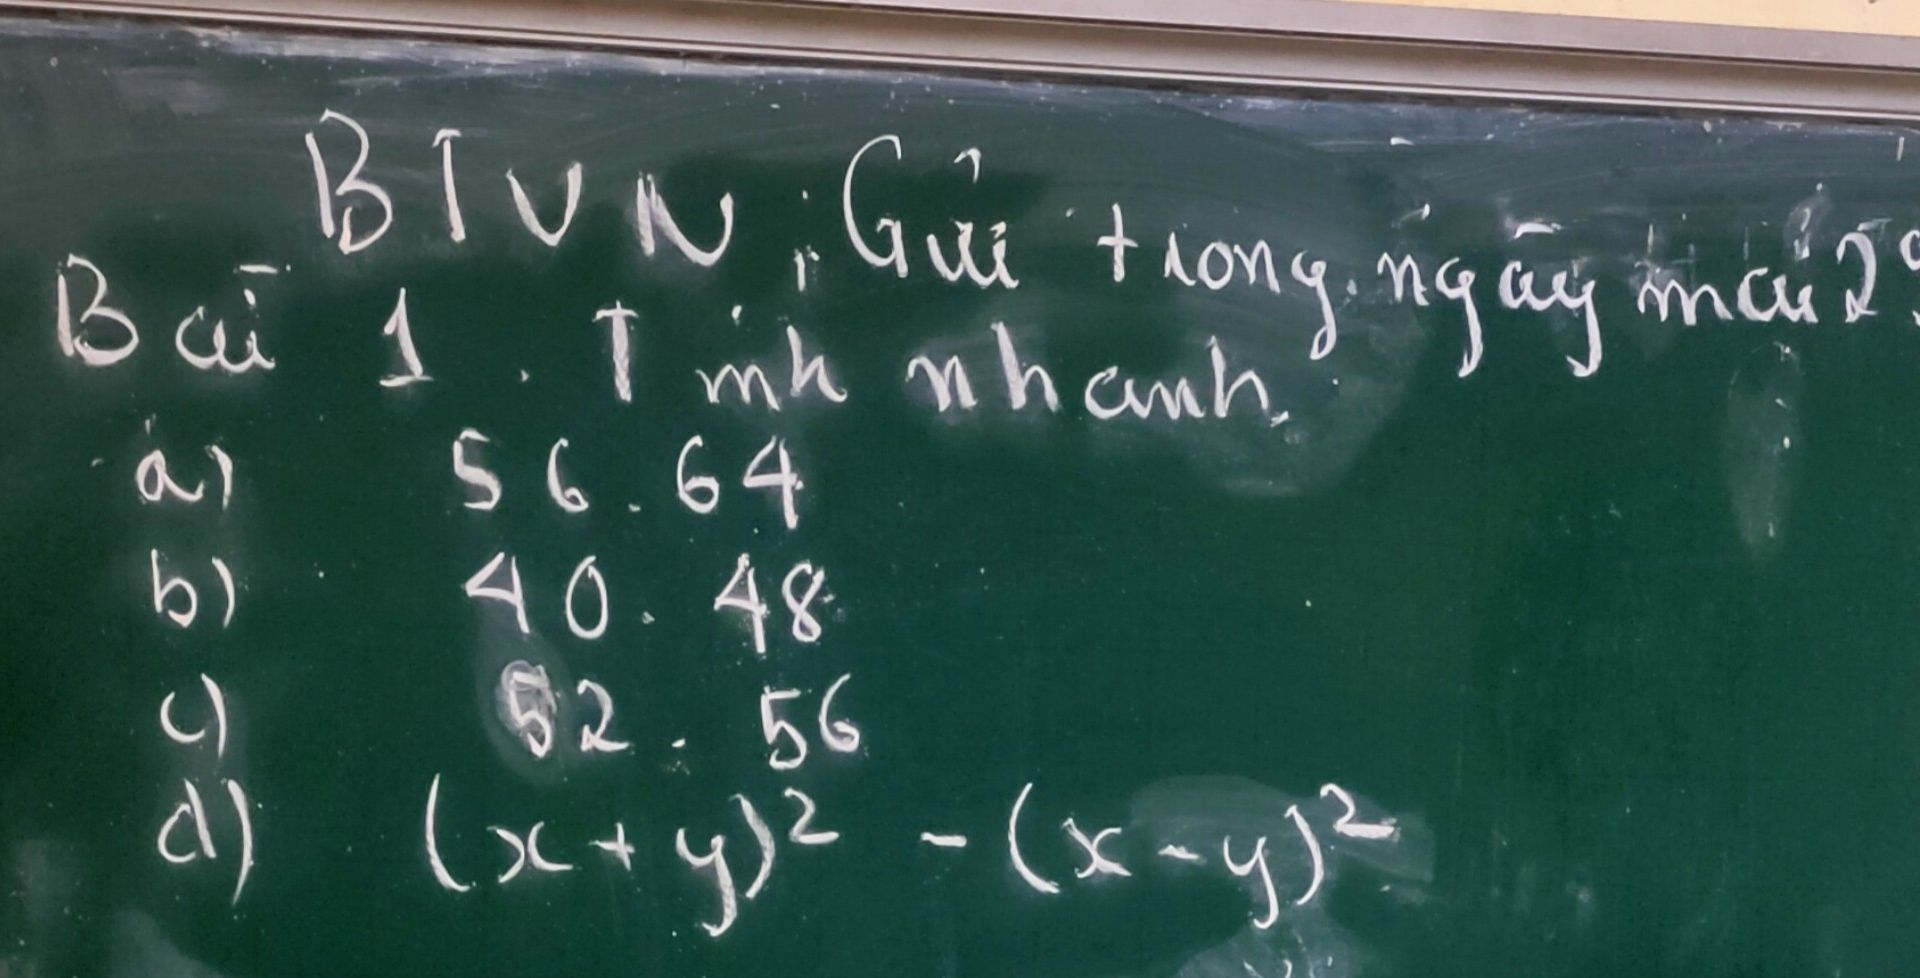 BTVN: Gửi trong ngày mai 29
Bài 1. Tính nhanh.
a) 56.64
b) 40.48
c) 52.56
d) (x+y)² - (x-y)²